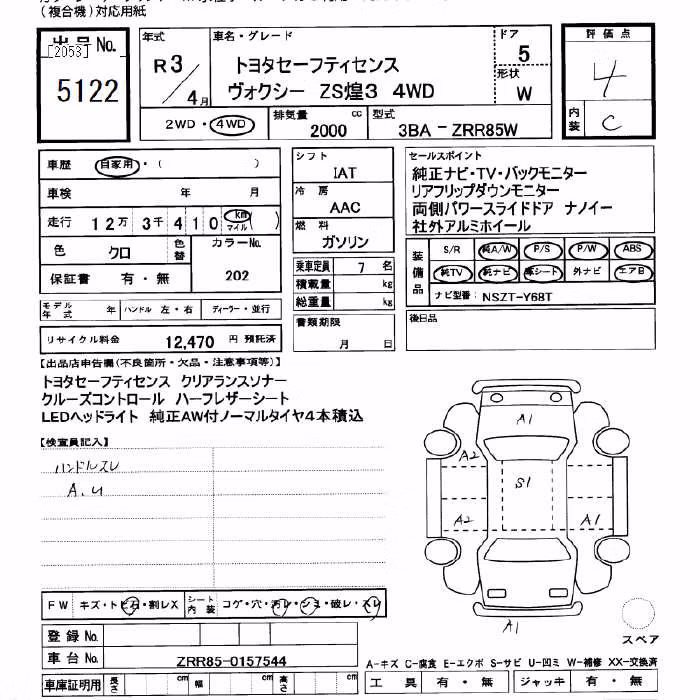 (複合機)対応用紙
出品No.
[2053]
5122
年式
R3/4月
車名・グレード
トヨタセーフティセンス
ヴォクシー ZS煌3 4WD
ドア
5
形状
W
評価点
4
内装
C
2WD・4WD
排気量
2000
cc
型式
3BA-ZRR85W
車歴
自家用・( )
車検 年 月
走行 12万3千410 km マイル( )
色
クロ
色替
カラーNo.
202
保証書 有・無
シフト
IAT
冷房
AAC
燃料
ガソリン
乗車定員 7 名
積載量 kg
総重量 kg
書類期限
月 日
セールスポイント
純正ナビ・TV・バックモニター
リアフリップダウンモニター
両側パワースライドドア ナノイー
社外アルミホイール
装備品
S/R 純A/W P/S P/W ABS
純TV 純ナビ 革シート 外ナビ エアB
ナビ型番: NSZT-Y68T
後日品
モデル年式 年 ハンドル 左・右 ディーラー・並行
リサイクル料金 12,470 円 預託済
【出品店申告欄(不良箇所・欠品・注意事項等)】
トヨタセーフティセンス クリアランスソナー
クルーズコントロール ハーフレザーシート
LEDヘッドライト 純正AW付ノーマルタイヤ4本積込
【検査員記入】
ハンドルスレ
A.U
A1
A2
S1
A2
A1
A1
スペア
FW キズ・トビ石・割レX シート内装 コゲ・穴・汚レ・シミ・破レ・スレ
登録No.
車台No. ZRR85-0157544
車庫証明用 長さ cm 幅 cm 高さ cm
A-キズ C-腐食 E-エクボ S-サビ U-凹ミ W-補修 XX-交換済
工具 有・無 ジャッキ 有・無